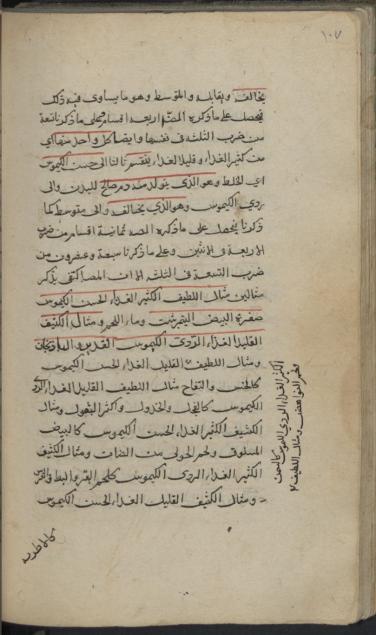 ١٠٧
يخالفه ويقابله والمتوسط وهو ما يساوى فيه ذلك
فيحصل على ما ذكره المصنف اربعة اقسام وعلى ما ذكرنا تسعة
من ضرب الثلثة فى نفسها وايضا كل واحد منها اى
من كثير الغذاء وقليل الغذاء ينقسم ثالثا الى حسن الكيموس
اى الخلط وهو الذى يتولد منه دم صالح للبدن والى
ردى الكيموس وهو الذى يخالفه والى متوسط كما
ذكرنا فيحصل على ما ذكره المصنف ثمانية اقسام من ضرب
الاربعة فى الاثنين وعلى ما ذكرنا سبعة وعشرون من
ضرب التسعة فى الثلثة الا ان المصنف اكتفى بذكر
مثال اللطيف الكثير الغذاء الحسن الكيموس
صفرة البيض النيمرشت وماء اللحم ومثال الكثيف
القليل الغذاء الردى الكيموس القديد والباذنجان
ومثال اللطيف القليل الغذاء الحسن الكيموس
كالخس والتفاح مثال اللطيف القليل الغذاء الردى
الكيموس كالفجل والخردل واكثر البقول ومثال
الكثيف الكثير الغذاء الحسن الكيموس كالبيض
المسلوق ولحم الحولى من الضان ومثال الكثيف
الكثير الغذاء الردى الكيموس كلحم البقر والبط والفرس
ومثال الكثيف القليل الغذاء الحسن الكيموس
الكثير الغذاء الردى الكيموس كالرئة
ومثال اللطيف